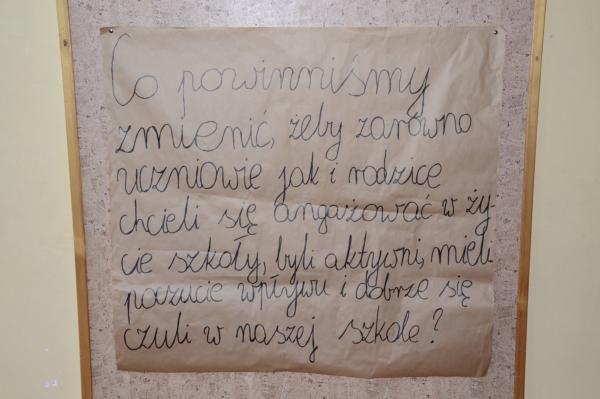 Co powinniśmy
zmienić, żeby zarówno
uczniowie jak i rodzice
chcieli się angażować w ży-
cie szkoły, byli aktywni, mieli
poczucie wpływu i dobrze się
czuli w naszej szkole?